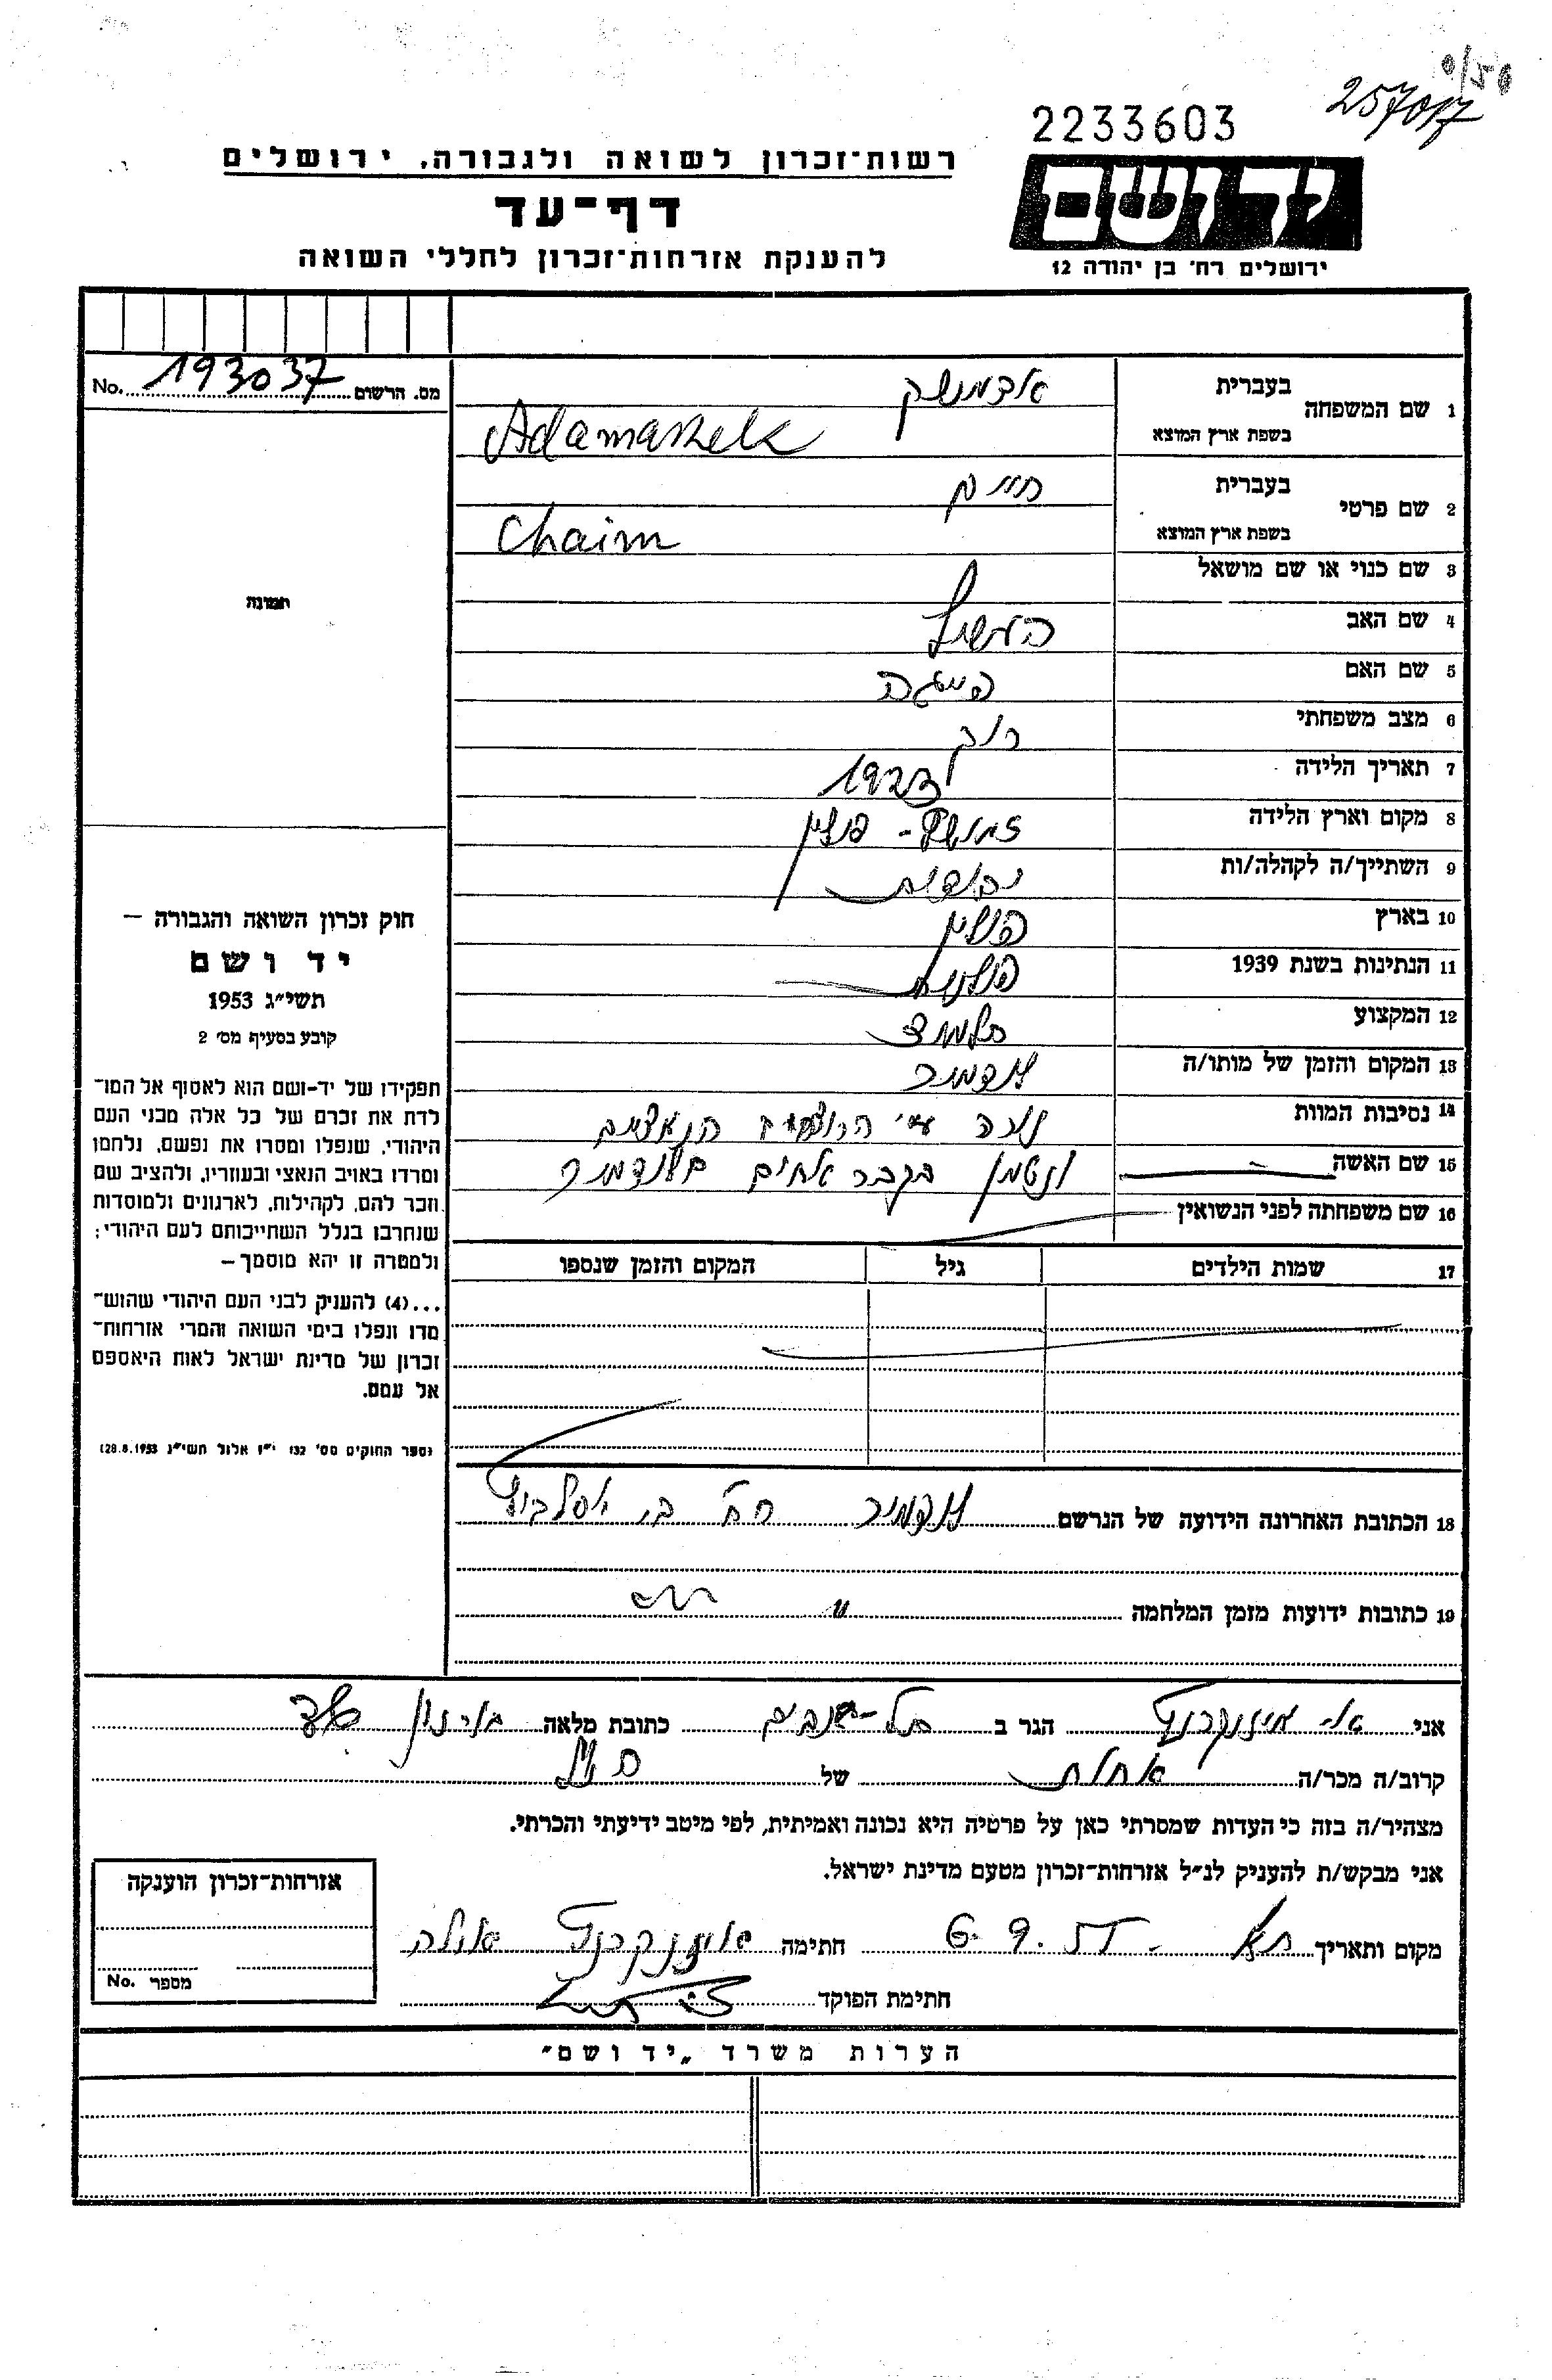 257017
2233603
רשות־זכרון לשואה ולגבורה, ירושלים
דף־עד
להענקת אזרחות־זכרון לחללי השואה
יד ושם
ירושלים רח' בן יהודה 12
מס. הרשום 193037 No.
1 שם המשפחה בעברית אדמשק
בשפת ארץ המוצא Adamashek
2 שם פרטי בעברית חיים
בשפת ארץ המוצא Chaim
3 שם כנוי או שם מושאל
4 שם האב הרשיל
5 שם האם פייגה
6 מצב משפחתי רווק
7 תאריך הלידה 1923
8 מקום וארץ הלידה זמושץ - פולין
9 השתייך/ה לקהלה/ות יהודית
10 בארץ פולין
11 הנתינות בשנת 1939 פולנית
12 המקצוע תלמיד
13 המקום והזמן של מותו/ה לודמיר
14 נסיבות המוות נורה ע"י הרוצחים הנאצים
ונטמן בקבר אחים בלודמיר
15 שם האשה
16 שם משפחתה לפני הנשואין
17 שמות הילדים גיל המקום והזמן שנספו
תמונה
חוק זכרון השואה והגבורה –
יד ושם
תשי"ג 1953
קובע בסעיף מס' 2
תפקידו של יד־ושם הוא לאסוף אל המו־
לדת את זכרם של כל אלה מבני העם
היהודי, שנפלו ומסרו את נפשם, נלחמו
ומרדו באויב הנאצי ובעוזריו, ולהציב שם
וזכר להם, לקהילות, לארגונים ולמוסדות
שנחרבו בגלל השתייכותם לעם היהודי;
ולמטרה זו יהא מוסמך –
...(4) להעניק לבני העם היהודי שהוש־
מדו ונפלו בימי השואה והמרי אזרחות־
זכרון של מדינת ישראל לאות היאספם
אל עמם.
(ספר החוקים מס' 132 י"ז אלול תשי"ג 28.8.1953)
18 הכתובת האחרונה הידועה של הנרשם לודמיר רח'
19 כתובות ידועות מזמן המלחמה "
אני הגר ב תל-אביב כתובת מלאה
קרוב/ה מכר/ה אחות של
מצהיר/ה בזה כי העדות שמסרתי כאן על פרטיה היא נכונה ואמיתית, לפי מיטב ידיעתי והכרתי.
אני מבקש/ת להעניק לנ"ל אזרחות־זכרון מטעם מדינת ישראל.
מקום ותאריך ת"א 6.9.55 חתימה
חתימת הפוקד
אזרחות־זכרון הוענקה
מספר No.
הערות משרד „יד ושם"